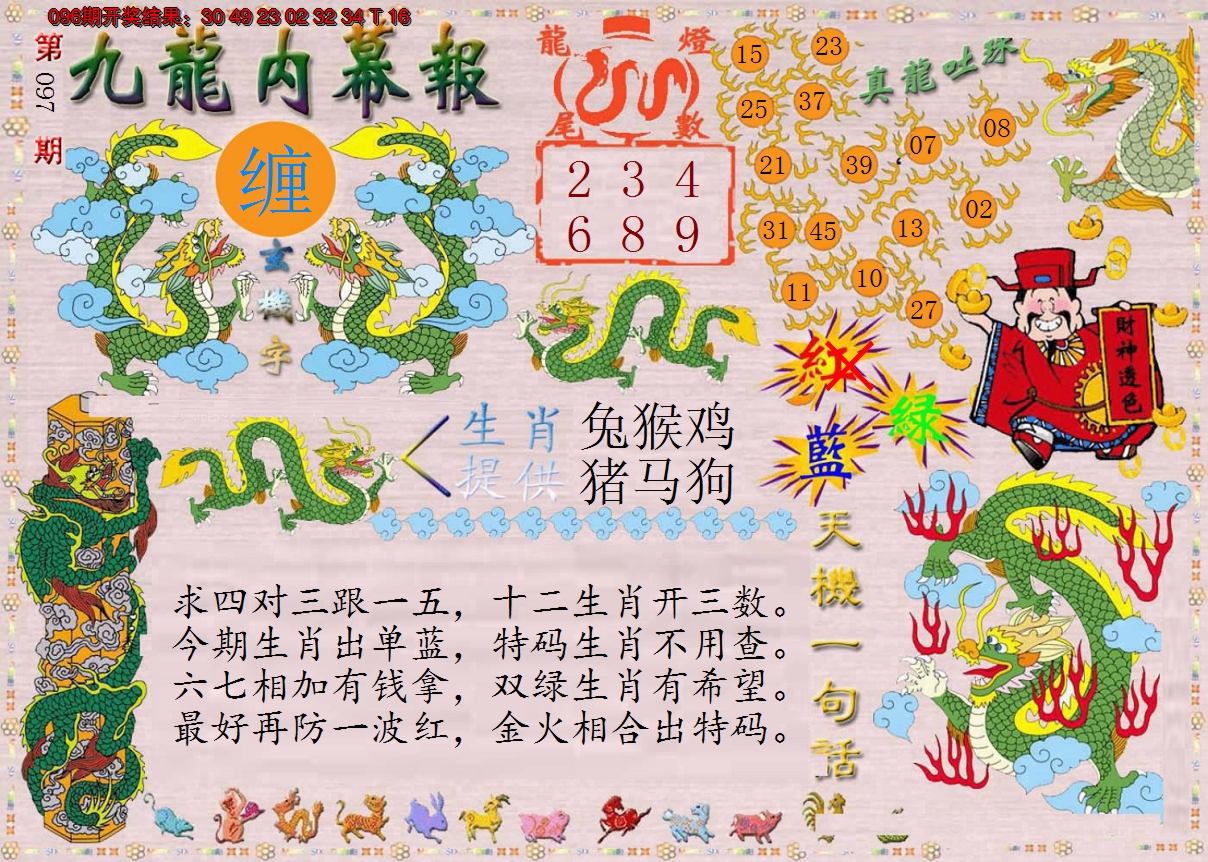 096期开奖结果：30 49 23 02 32 34 T 16
第097期
九龍内幕報
缠
玄機字
龍燈
尾數
2 3 4
6 8 9
真龍吐珠
15 23
25 37
21 39 07 08
31 45 13 02
11 10 27
財神透色
紅
绿
藍
生肖 兔猴鸡
提供 猪马狗
求四对三跟一五，十二生肖开三数。
今期生肖出单蓝，特码生肖不用查。
六七相加有钱拿，双绿生肖有希望。
最好再防一波红，金火相合出特码。
天機一句話